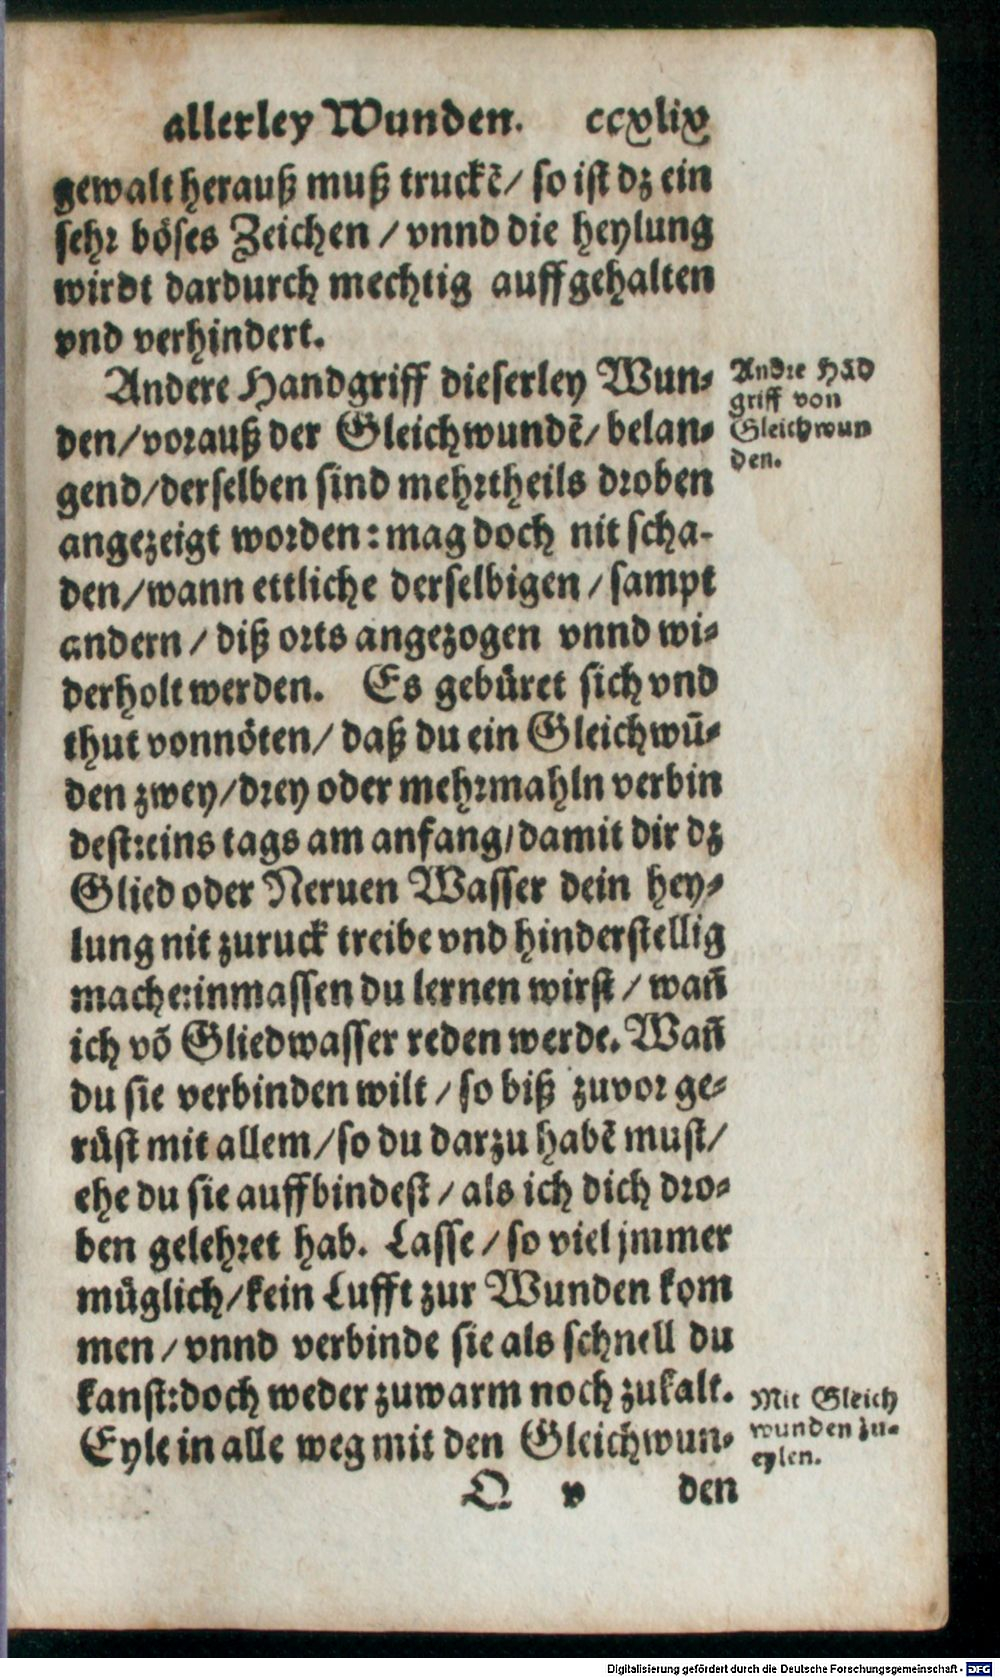 allerley Wunden. ccxlix
gewalt herauß muß truckẽ/ so ist dz ein
sehr böses Zeichen / vnnd die heylung
wirdt dardurch mechtig auffgehalten
vnd verhindert.
Andere Handgriff dieserley Wun-
den/vorauß der Gleichwundẽ/ belan-
gend/derselben sind mehrtheils droben
angezeigt worden: mag doch nit scha-
den/wann ettliche derselbigen / sampt
andern / diß orts angezogen vnnd wi-
derholt werden. Es gebüret sich vnd
thut vonnöten/ daß du ein Gleichwũ-
den zwey/drey oder mehrmahln verbin
dest:eins tags am anfang/damit dir dz
Glied oder Neruen Wasser dein hey-
lung nit zuruck treibe vnd hinderstellig
mache:inmassen du lernen wirst / wañ
ich võ Gliedwasser reden werde. Wañ
du sie verbinden wilt / so biß zuvor ge-
rüst mit allem/so du darzu habẽ must/
ehe du sie auffbindest / als ich dich dro-
ben gelehret hab. Lasse / so viel jmmer
müglich/kein Lufft zur Wunden kom
men / vnnd verbinde sie als schnell du
kanst:doch weder zuwarm noch zukalt.
Eyle in alle weg mit den Gleichwun-
Q v den
Andre Hãd
griff von
Gleichwun
den.
Mit Gleich
wunden zu-
eylen.
Digitalisierung gefördert durch die Deutsche Forschungsgemeinschaft - DFG